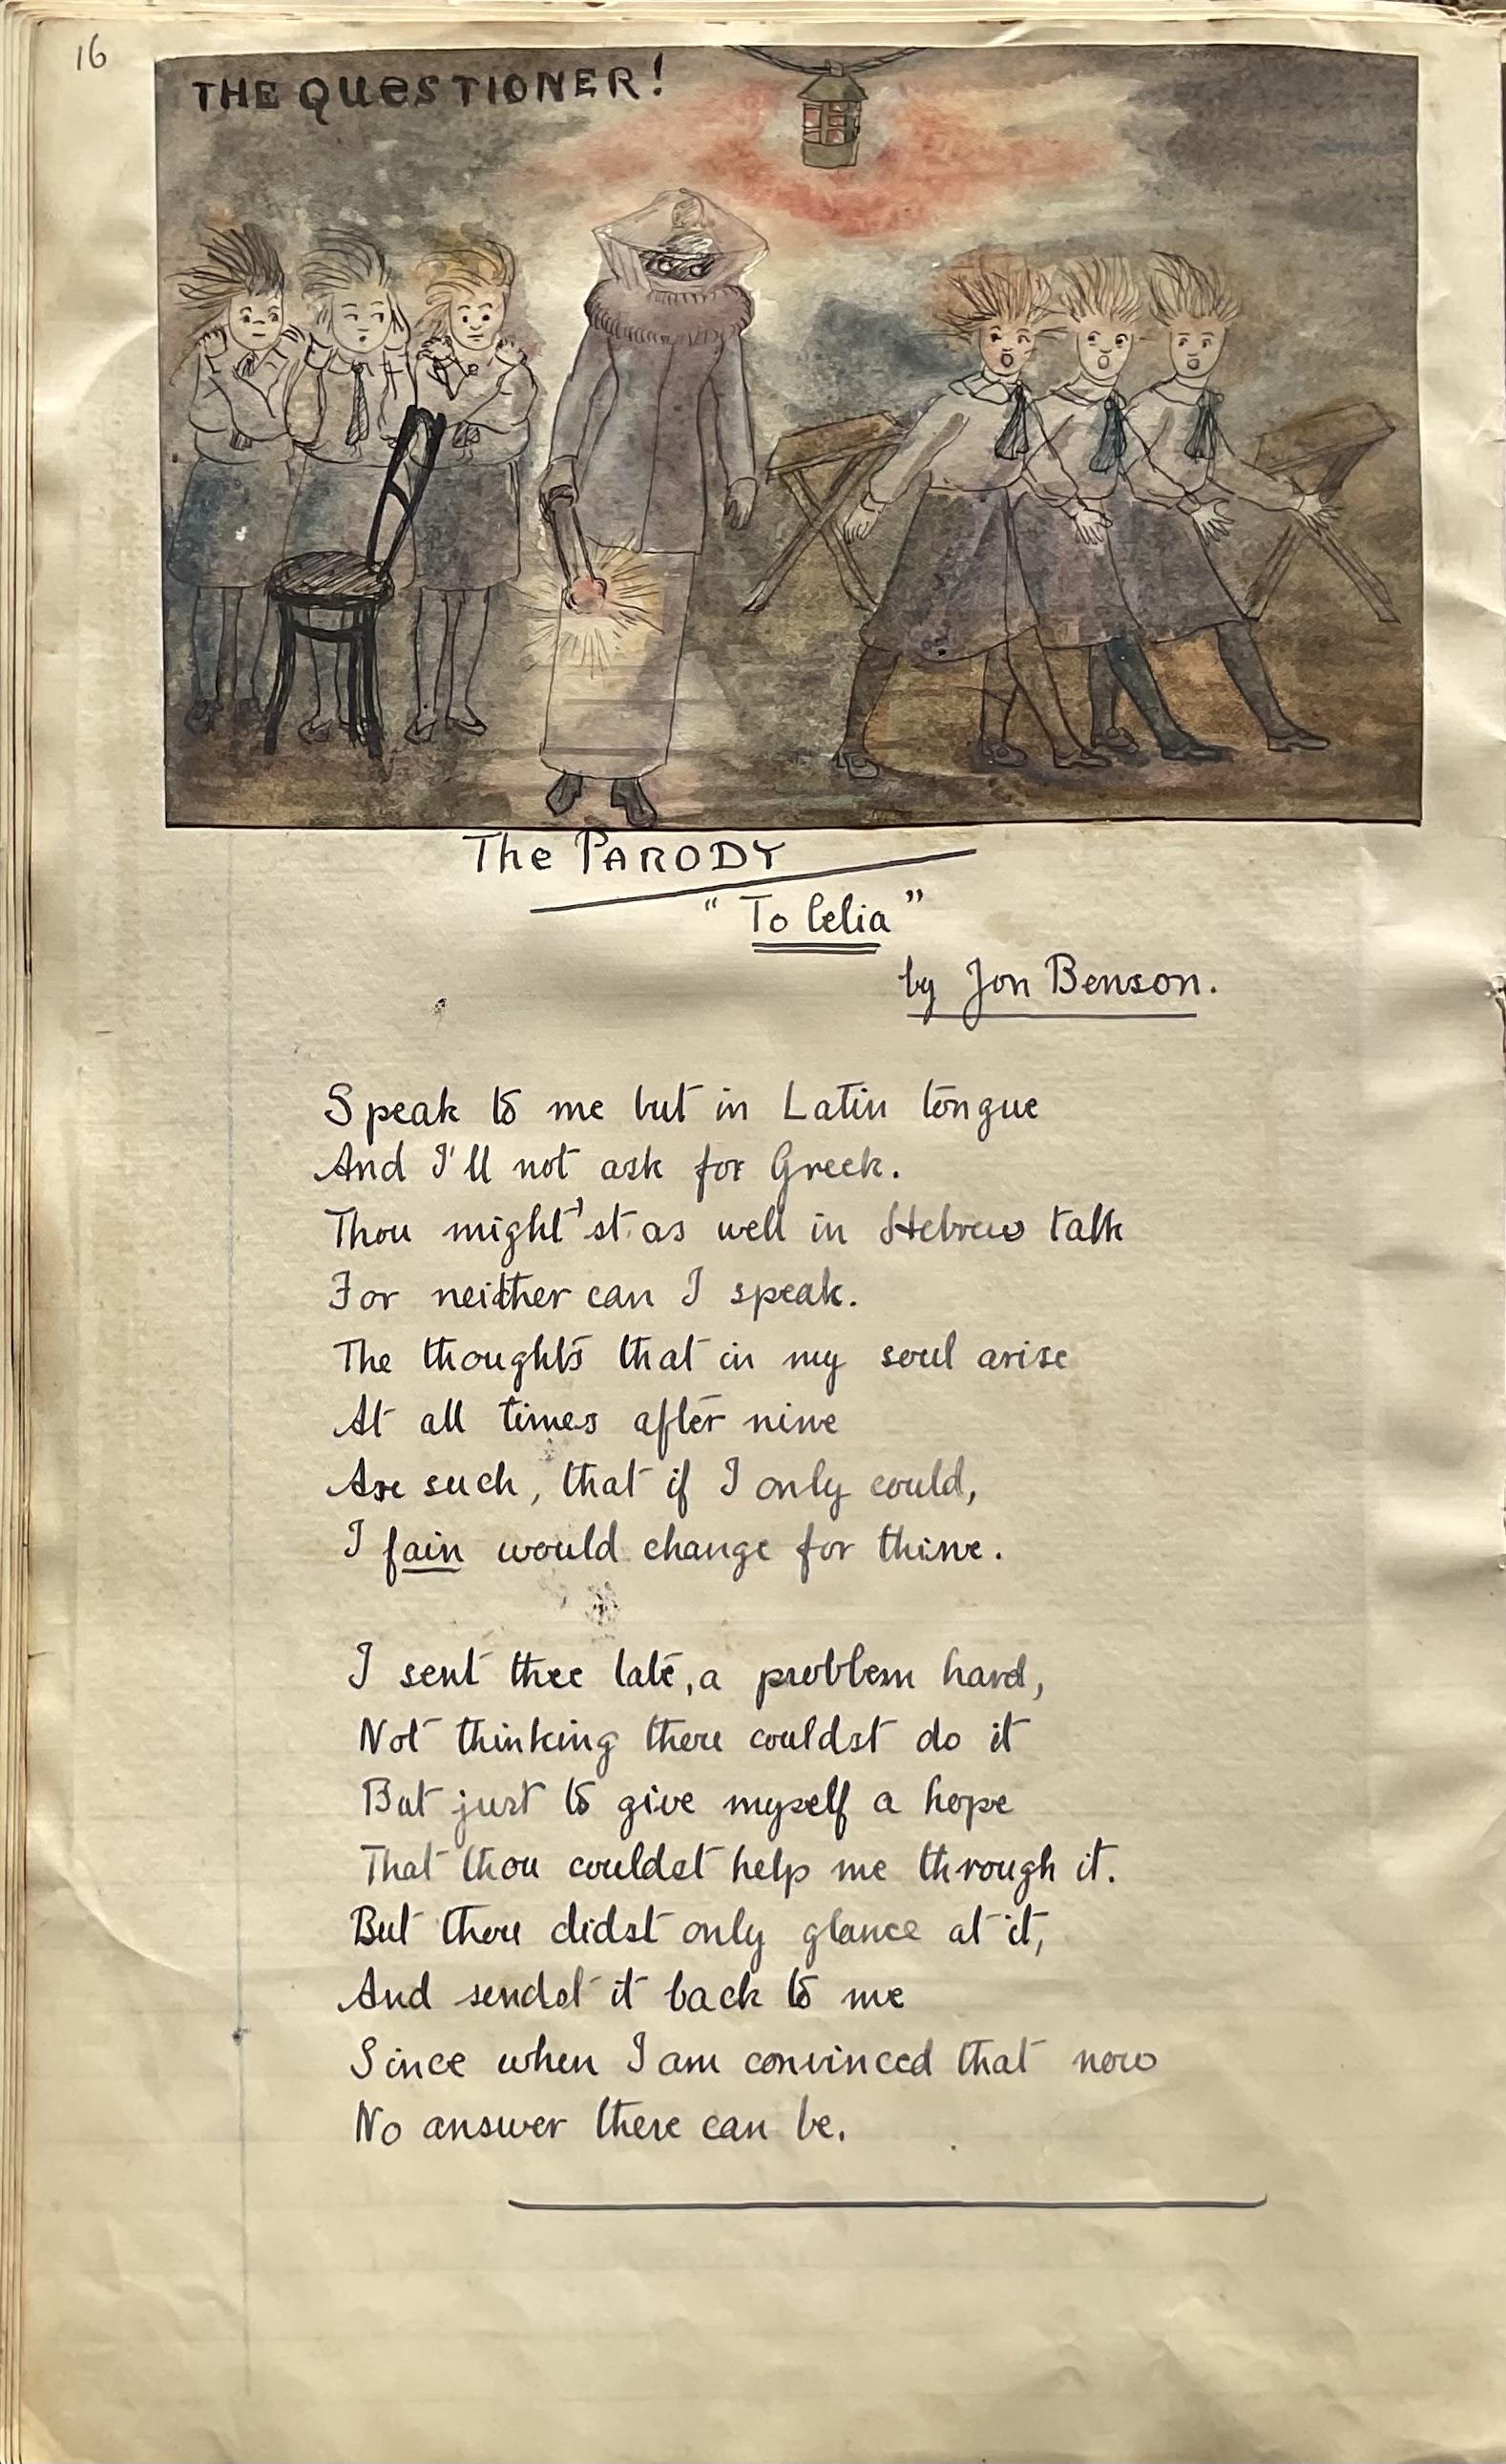 16
THE QUESTIONER!
The PARODY
"To Celia"
by Jon Benson.
Speak to me but in Latin tongue
And I'll not ask for Greek.
Thou might'st as well in Hebrew talk
For neither can I speak.
The thoughts that in my soul arise
At all times after nine
Are such, that if I only could,
I fain would change for thine.
I sent thee late, a problem hard,
Not thinking thou couldst do it
But just to give myself a hope
That thou couldst help me through it.
But thou didst only glance at it,
And sendst it back to me
Since when I am convinced that now
No answer there can be.